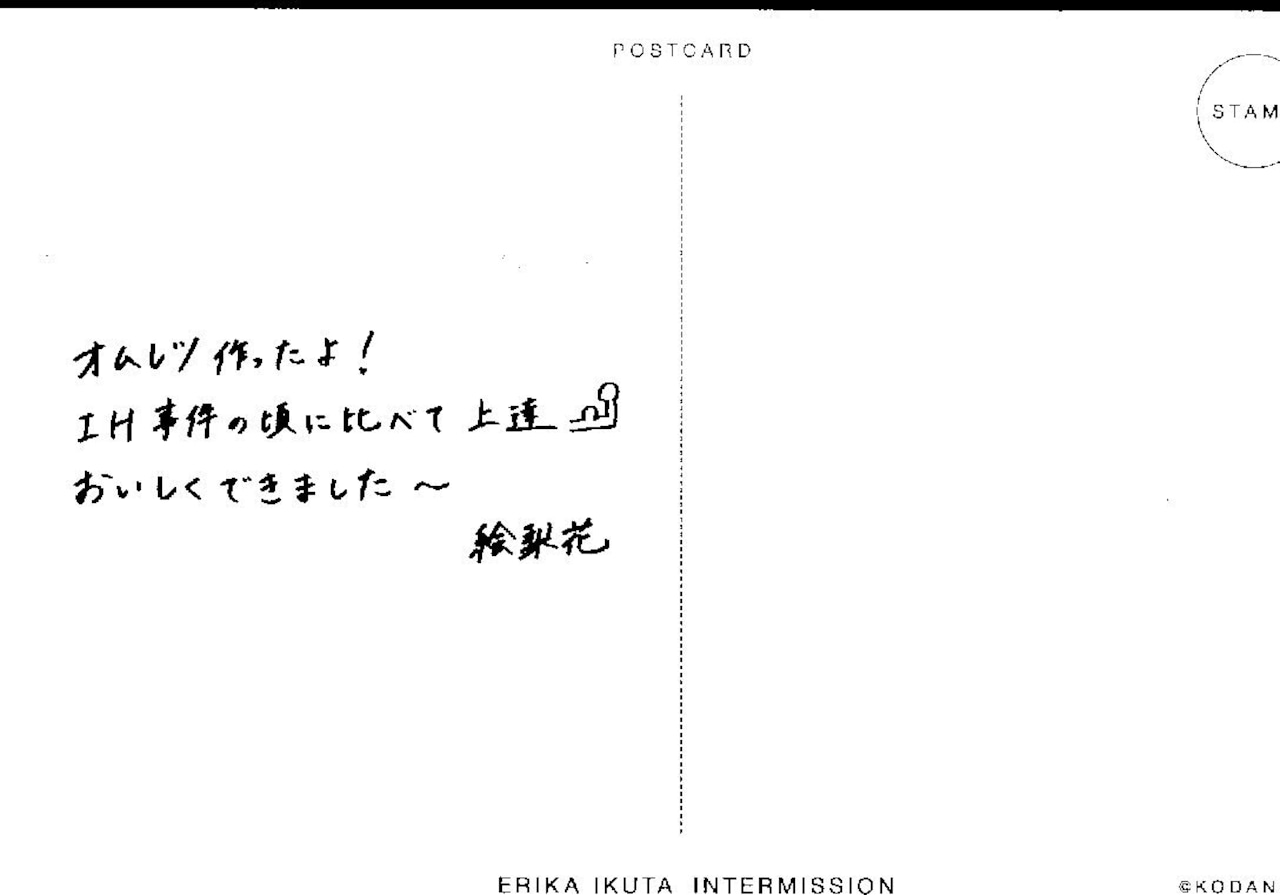 POSTCARD
STAM
オムレツ作ったよ!
IH事件の頃に比べて上達
おいしくできました〜
絵梨花
ERIKA IKUTA INTERMISSION
©KODAN